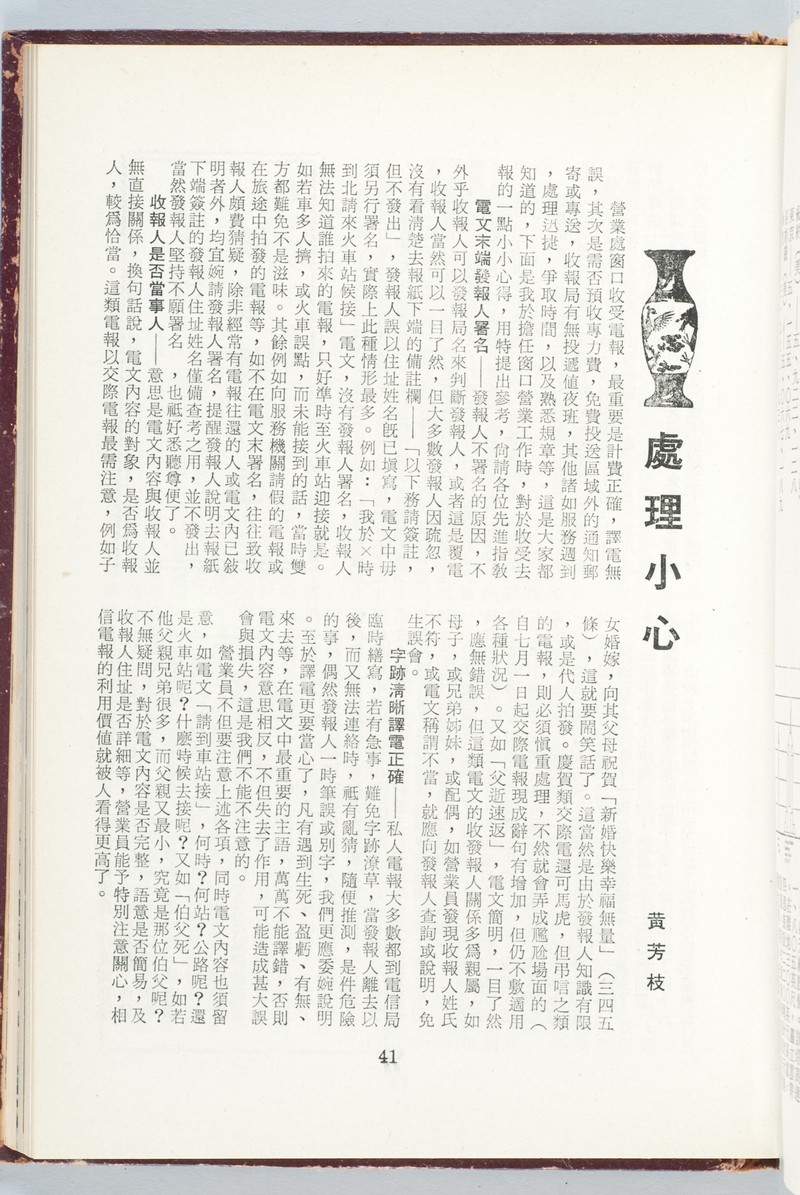 處理小心
黃芳枝
營業處窗口收受電報，最重要是計費正確，譯電無
誤，其次是需否預收專力費，免費投送區域外的通知郵
寄或專送，收報局有無投遞值夜班，其他諸如服務週到
，處理迅捷，爭取時間，以及熟悉規章等，這是大家都
知道的，下面是我於擔任窗口營業工作時，對於收受去
報的一點小小心得，用特提出參考，尙請各位先進指教
電文末端發報人署名——發報人不署名的原因，不
外乎收報人可以發報局名來判斷發報人，或者這是覆電
，收報人當然可以一目了然，但大多數發報人因疏忽，
沒有看清楚去報紙下端的備註欄——「以下務請簽註，
但不發出」，發報人誤以住址姓名旣已塡寫，電文中毋
須另行署名，實際上此種情形最多。例如：「我於×時
到北請來火車站候接」電文，沒有發報人署名，收報人
無法知道誰拍來的電報，只好準時至火車站迎接就是。
如若車多人擠，或火車誤點，而未能接到的話，當時雙
方都難免不是滋味。其餘例如向服務機關請假的電報或
在旅途中拍發的電報等，如不在電文末署名，往往致收
報人頗費猜疑，除非經常有電報往還的人或電文內已敍
明者外，均宜婉請發報人署名，提醒發報人說明去報紙
下端簽註的發報人住址姓名僅備查考之用，並不發出，
當然發報人堅持不願署名，也祇好悉聽尊便了。
收報人是否當事人——意思是電文內容與收報人並
無直接關係，換句話說，電文內容的對象，是否爲收報
人，較爲恰當。這類電報以交際電報最需注意，例如子
女婚嫁，向其父母祝賀「新婚快樂幸福無量」（三四五
條），這就要鬧笑話了。這當然是由於發報人知識有限
，或是代人拍發。慶賀類交際電還可馬虎，但弔唁之類
的電報，則必須愼重處理，不然就會弄成尶尬場面的（
自七月一日起交際電報現成辭句有增加，但仍不敷適用
各種狀況）。又如「父逝速返」，電文簡明，一目了然
，應無錯誤，但這類電文的收發報人關係多爲親屬，如
母子，或兄弟姊妹，或配偶，如營業員發現收報人姓氏
不符，或電文稱謂不當，就應向發報人查詢或說明，免
生誤會。
字跡淸晰譯電正確——私人電報大多數都到電信局
臨時繕寫，若有急事，難免字跡潦草，當發報人離去以
後，而又無法連絡時，祗有亂猜，隨便推測，是件危險
的事，偶然發報人一時筆誤或別字，我們更應委婉說明
。至於譯電更要當心了，凡有遇到生死、盈虧、有無、
來去等，在電文中最重要的主語，萬萬不能譯錯，否則
電文內容意思相反，不但失去了作用，可能造成甚大誤
會與損失，這是我們不能不注意的。
營業員不但要注意上述各項，同時電文內容也須留
意，如電文「請到車站接」，何時？何站？公路呢？還
是火車站呢？什麼時候去接呢？又如「伯父死」，如若
他父親兄弟很多，而父親又最小，究竟是那位伯父呢？
不無疑問，對於電文內容是否完整，語意是否簡易，及
收報人住址是否詳細等，營業員能予特別注意關心，相
信電報的利用價値就被人看得更高了。
41